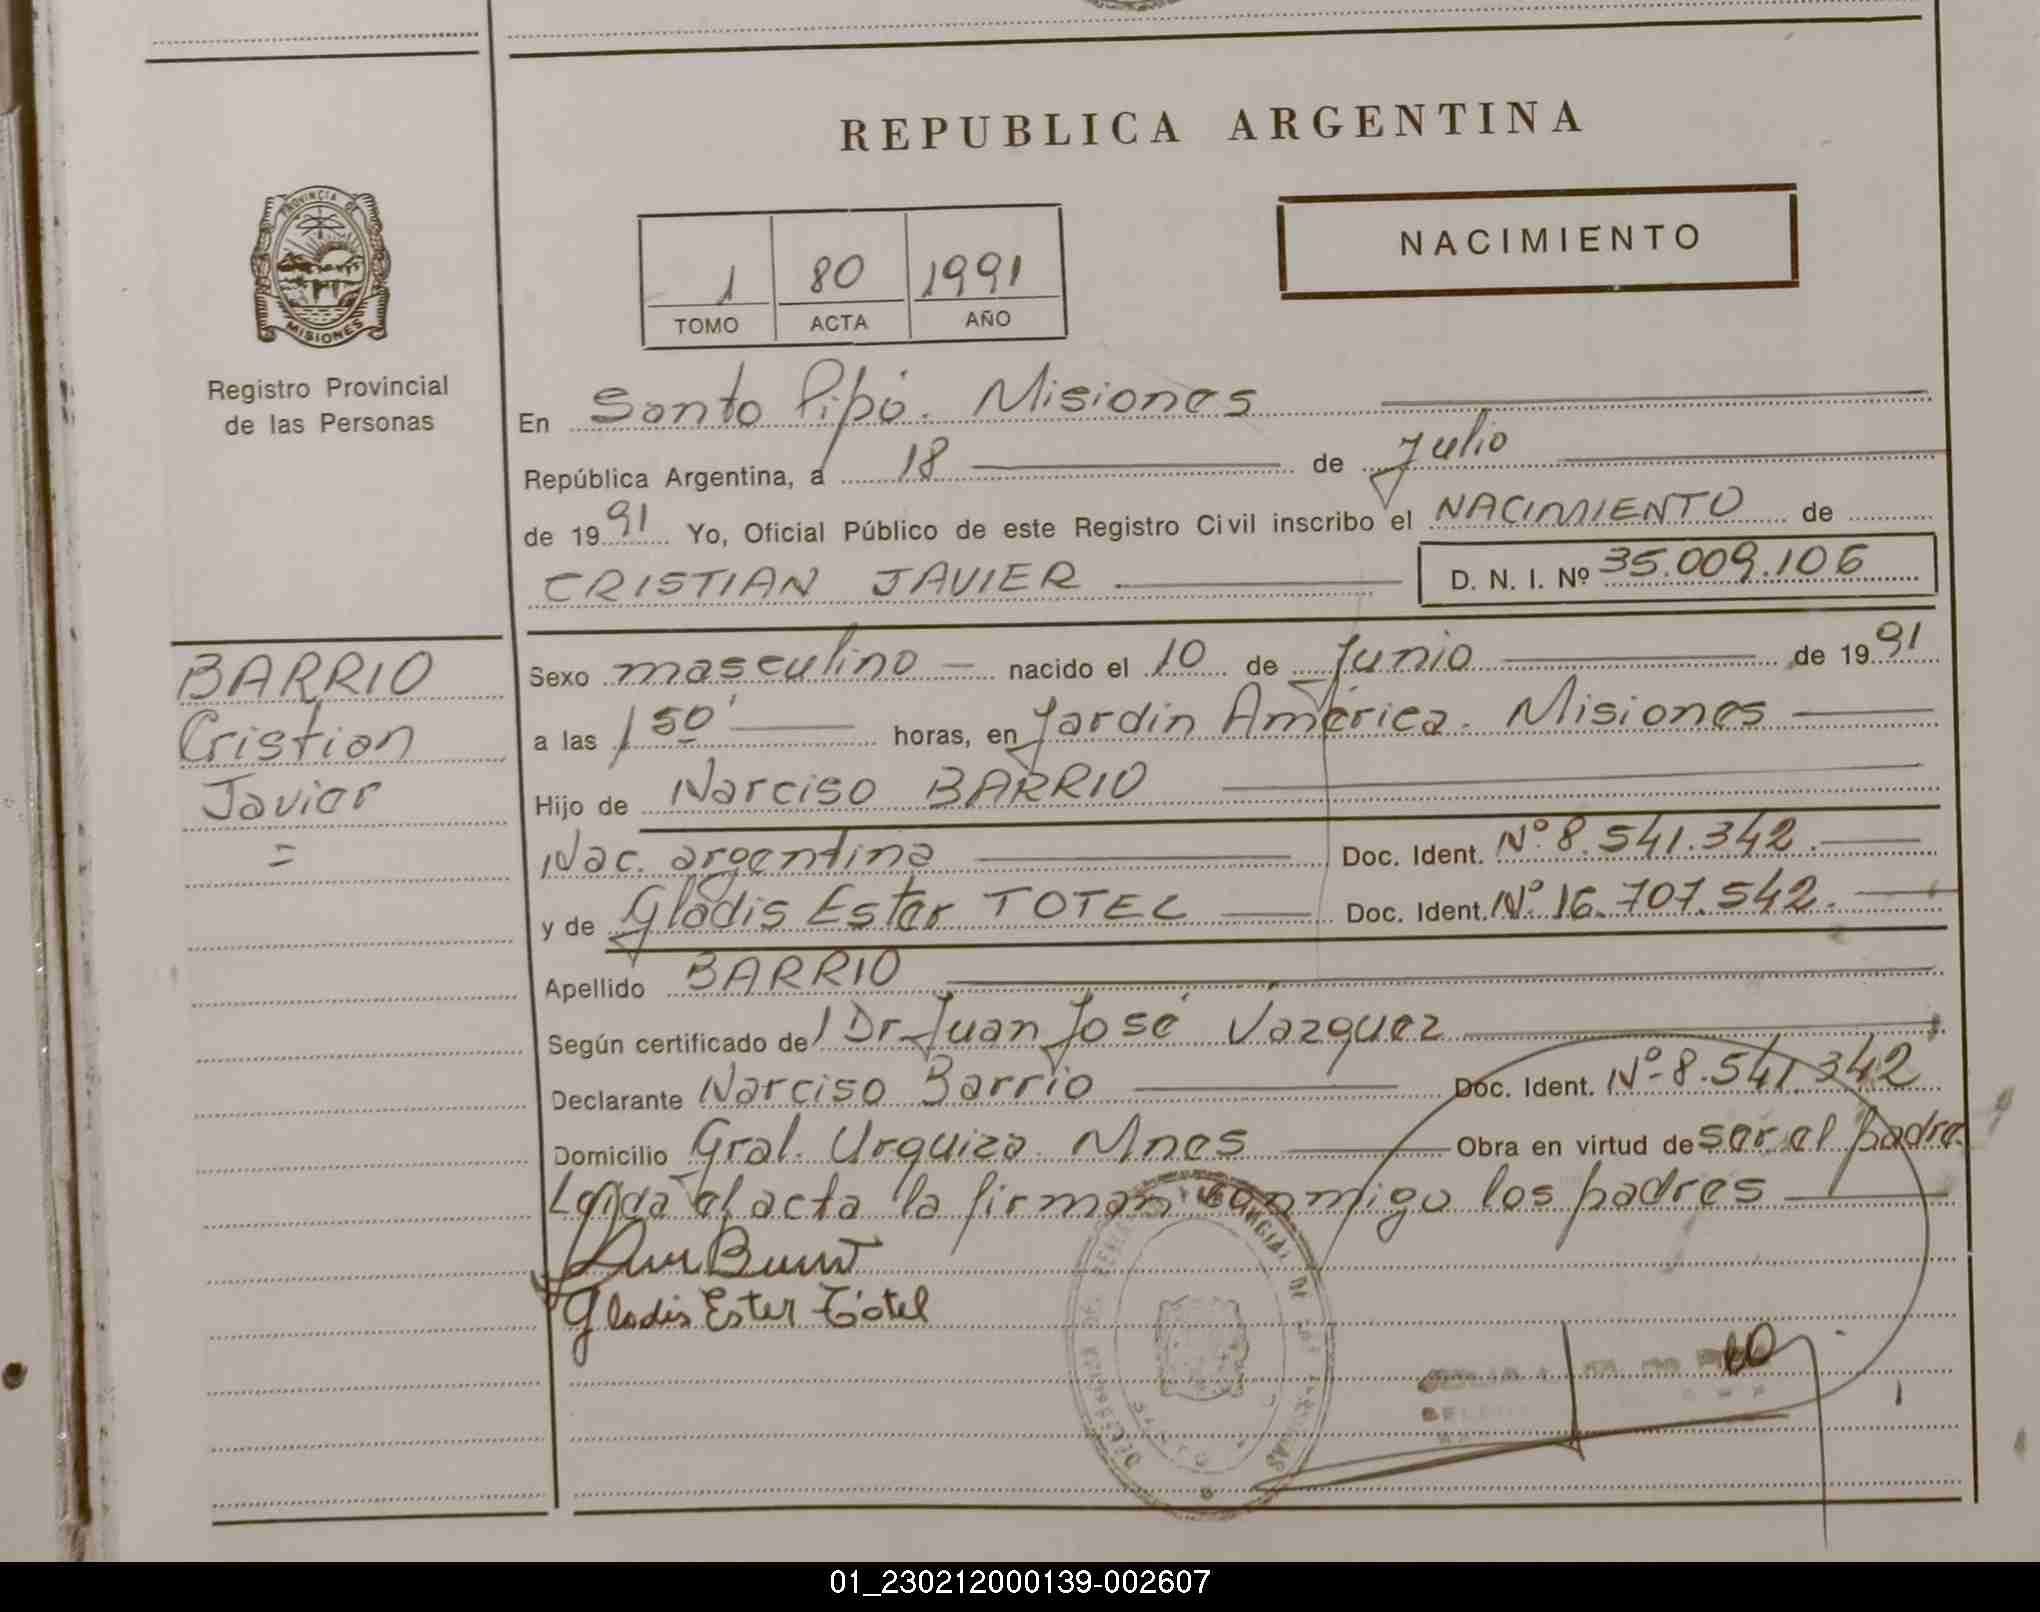 REPUBLICA ARGENTINA
PROVINCIA DE
MISIONES
Registro Provincial
de las Personas
NACIMIENTO
1 80 1991
TOMO ACTA AÑO
En Santo Pipó. Misiones
República Argentina, a 18 de Julio
de 1991 Yo, Oficial Público de este Registro Civil inscribo el NACIMIENTO de
CRISTIAN JAVIER D. N. I. Nº 35.009.106
BARRIO
Cristian
Javier
=
Sexo masculino nacido el 10 de Junio de 1991
a las 1 50' horas, en Jardin América. Misiones
Hijo de Narciso BARRIO
Nac. argentina Doc. Ident. Nº 8.541.342.
y de Gladis Ester TOTEL Doc. Ident. Nº 16.707.542.
Apellido BARRIO
Según certificado de/ Dr Juan José Vázquez
Declarante Narciso Barrio Doc. Ident. Nº 8.541.342
Domicilio Gral. Urquiza Mnes Obra en virtud de ser el padre.
Leida el acta la firman conmigo los padres
Gladis Ester Totel
01_230212000139-002607